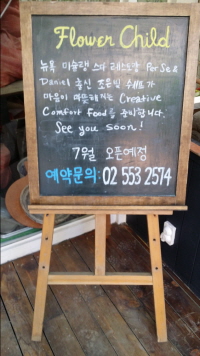 Flower Child
뉴욕 미슐랭 스타 레스토랑 Per Se &
Daniel 출신 조은빈 쉐프가
마음이 따뜻해지는 Creative
Comfort Food를 준비합니다.
See you soon!
7월 오픈예정
예약문의: 02 553 2574